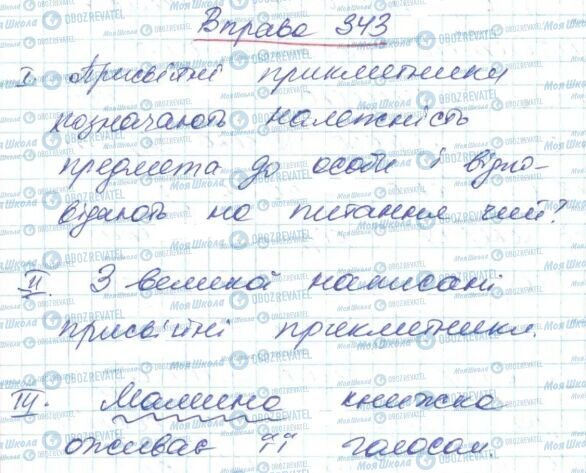 Вправа 343
I. Присвійні прикметники
позначають належність
предмета до особи і відпо-
відають на питання чий?
II. З великої написані
присвійні прикметники.
III. Мамина книжка
оживає її голосом.